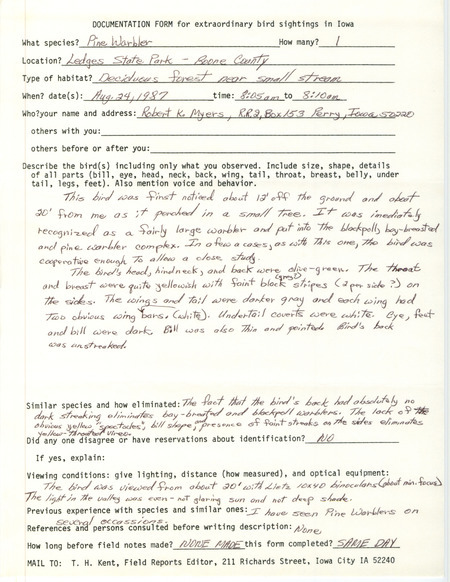 DOCUMENTATION FORM for extraordinary bird sightings in Iowa
What species? Pine Warbler How many? 1
Location? Ledges State Park - Boone County
Type of habitat? Deciduous forest near small stream
When? date(s): Aug. 24, 1987 time: 8:05am to 8:10am
Who? your name and address: Robert K. Myers, R.R.2, Box 153 Perry, Iowa 50220
others with you:
others before or after you:
Describe the bird(s) including only what you observed. Include size, shape, details
of all parts (bill, eye, head, neck, back, wing, tail, throat, breast, belly, under
tail, legs, feet). Also mention voice and behavior.
This bird was first noticed about 12' off the ground and about
20' from me as it perched in a small tree. It was imediatly
recognized as a fairly large warbler and put into the blackpoll, bay-breasted
and pine warbler complex. In a few cases, as with this one, the bird was
cooperative enough to allow a close study.
The bird's head, hindneck, and back were olive-green. The throat
and breast were quite yellowish with faint black (grey?) stripes (2 per side?) on
the sides. The wings and tail were darker gray and each wing had
two obvious wing bars. (white). Undertail coverts were white. Eye, feet
and bill were dark. Bill was also thin and pointed. Bird's back
was unstreaked.
Similar species and how eliminated: The fact that the bird's back had absolutely no
dark streaking eliminates bay-breasted and blackpoll warblers. The lack of the
obvious yellow "spectacles", bill shape, presence of faint streaks on the sides eliminates
yellow-throated vireos.
Did any one disagree or have reservations about identification? NO
If yes, explain:
Viewing conditions: give lighting, distance (how measured), and optical equipment:
The bird was viewed from about 20' with Lietz 10x40 binoculars (about min. focus)
The light in the valley was even - not glaring sun and not deep shade.
Previous experience with species and similar ones: I have seen Pine Warblers on
several occassions.
References and persons consulted before writing description: None
How long before field notes made? NONE MADE this form completed? SAME DAY
MAIL TO: T. H. Kent, Field Reports Editor, 211 Richards Street, Iowa City IA 52240